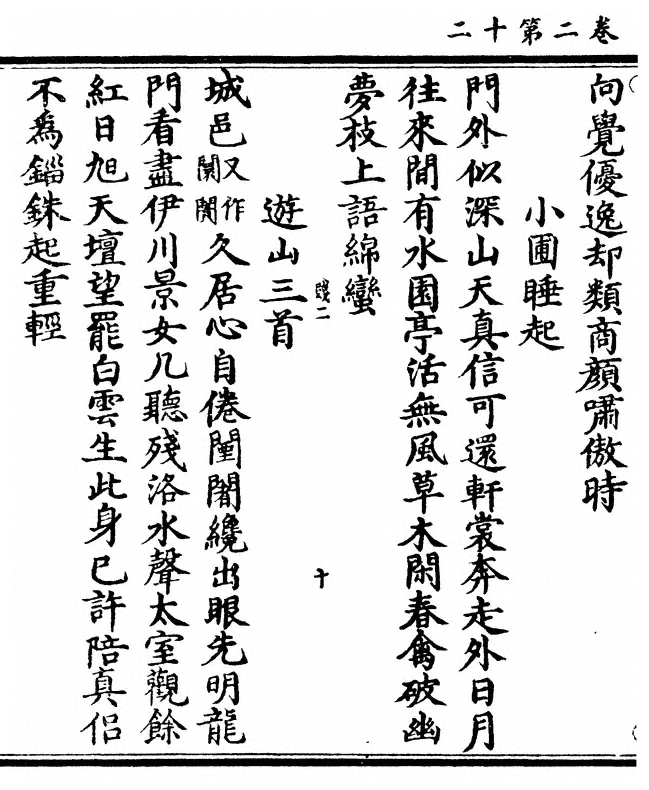 卷二第十二
向覺優逸却類商顏嘯傲時
小圃睡起
門外似深山天真信可還軒裳奔走外日月
往來間有水園亭活無風草木閑春禽破幽
夢枝上語綿蠻
十
遊山三首
城邑又作闤闠久居心自倦闉闍纔出眼先明龍
門看盡伊川景女几聽殘洛水聲太室觀餘
紅日旭天壇望罷白雲生此身已許陪真侣
不爲錙銖起重輕